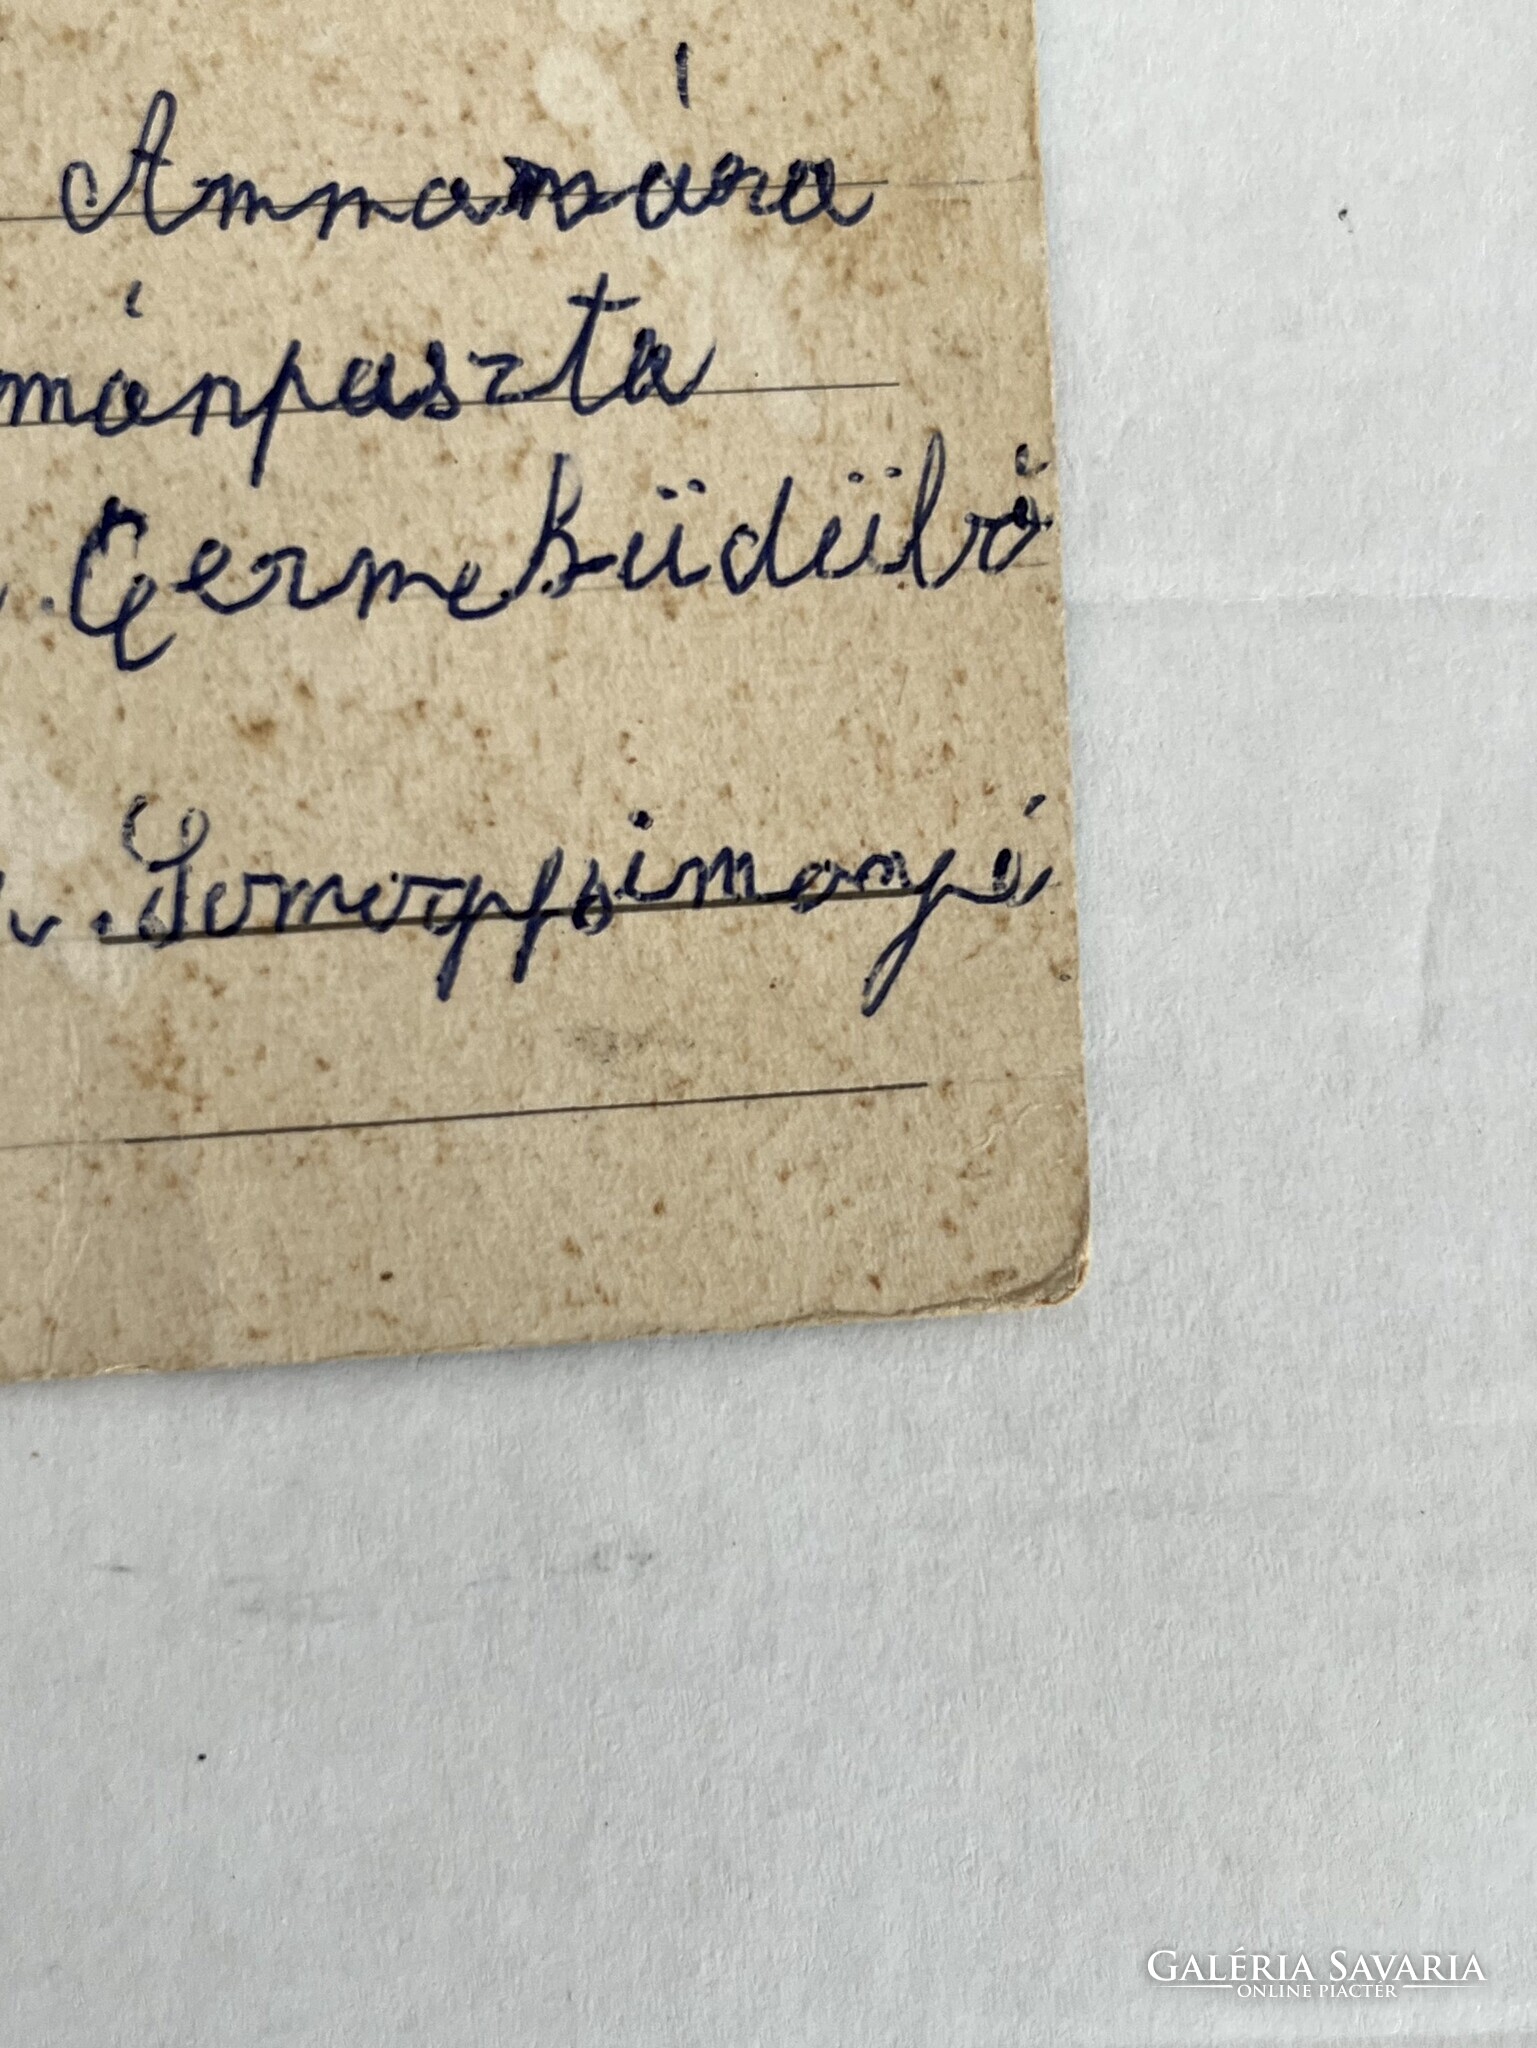 Annamária
mánpuszta
Gyermeküdülő
u. Somogysimonyi
GALÉRIA SAVARIA
ONLINE PIACTÉR